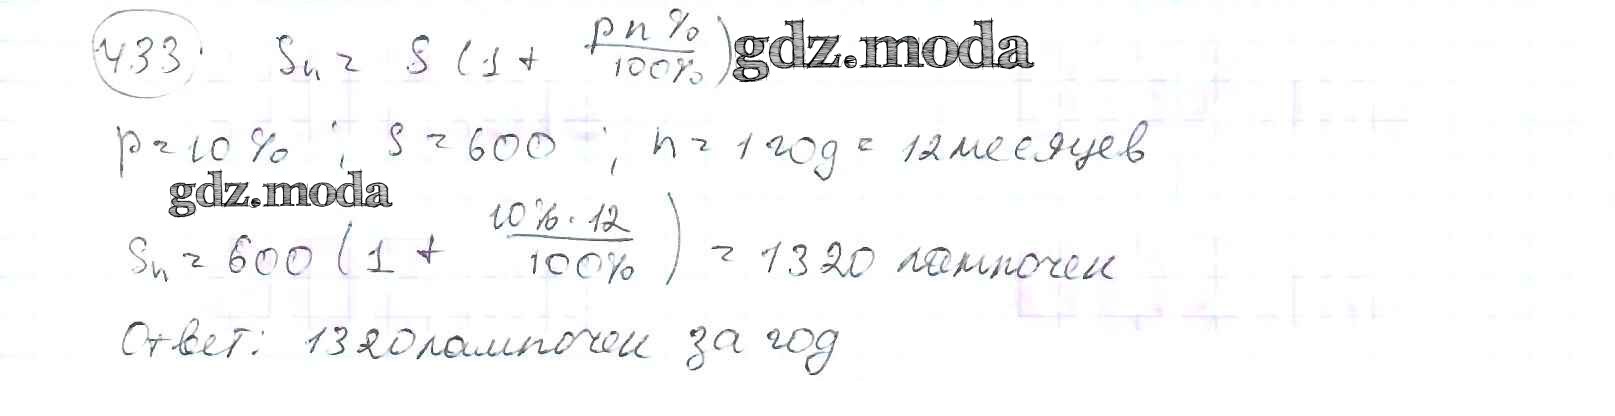 433. Sn = S (1 + pn%/100%) gdz.moda
p = 10% ; S = 600 ; n = 1 год = 12 месяцев
gdz.moda
Sn = 600 (1 + 10%·12/100%) = 1320 лампочек
Ответ: 1320 лампочек за год